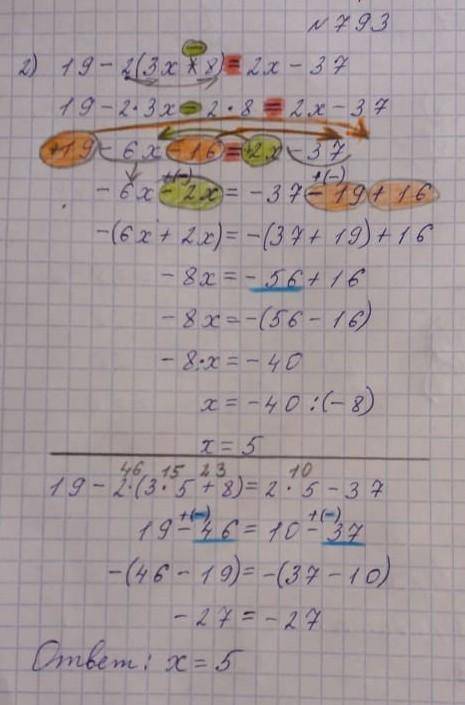 №793
2) 19 - 2(3x + 8) = 2x - 37
19 - 2·3x - 2·8 = 2x - 37
+19 - 6x - 16 = +2x - 37
+(-) +(-)
- 6x - 2x = - 37 - 19 + 16
-(6x + 2x) = -(37 + 19) + 16
- 8x = - 56 + 16
- 8x = -(56 - 16)
- 8·x = - 40
x = - 40 : (- 8)
x = 5
46 15 23 10
19 - 2·(3·5 + 8) = 2·5 - 37
+(-) +(-)
19 - 46 = 10 - 37
-(46 - 19) = -(37 - 10)
- 27 = - 27
Ответ: x = 5